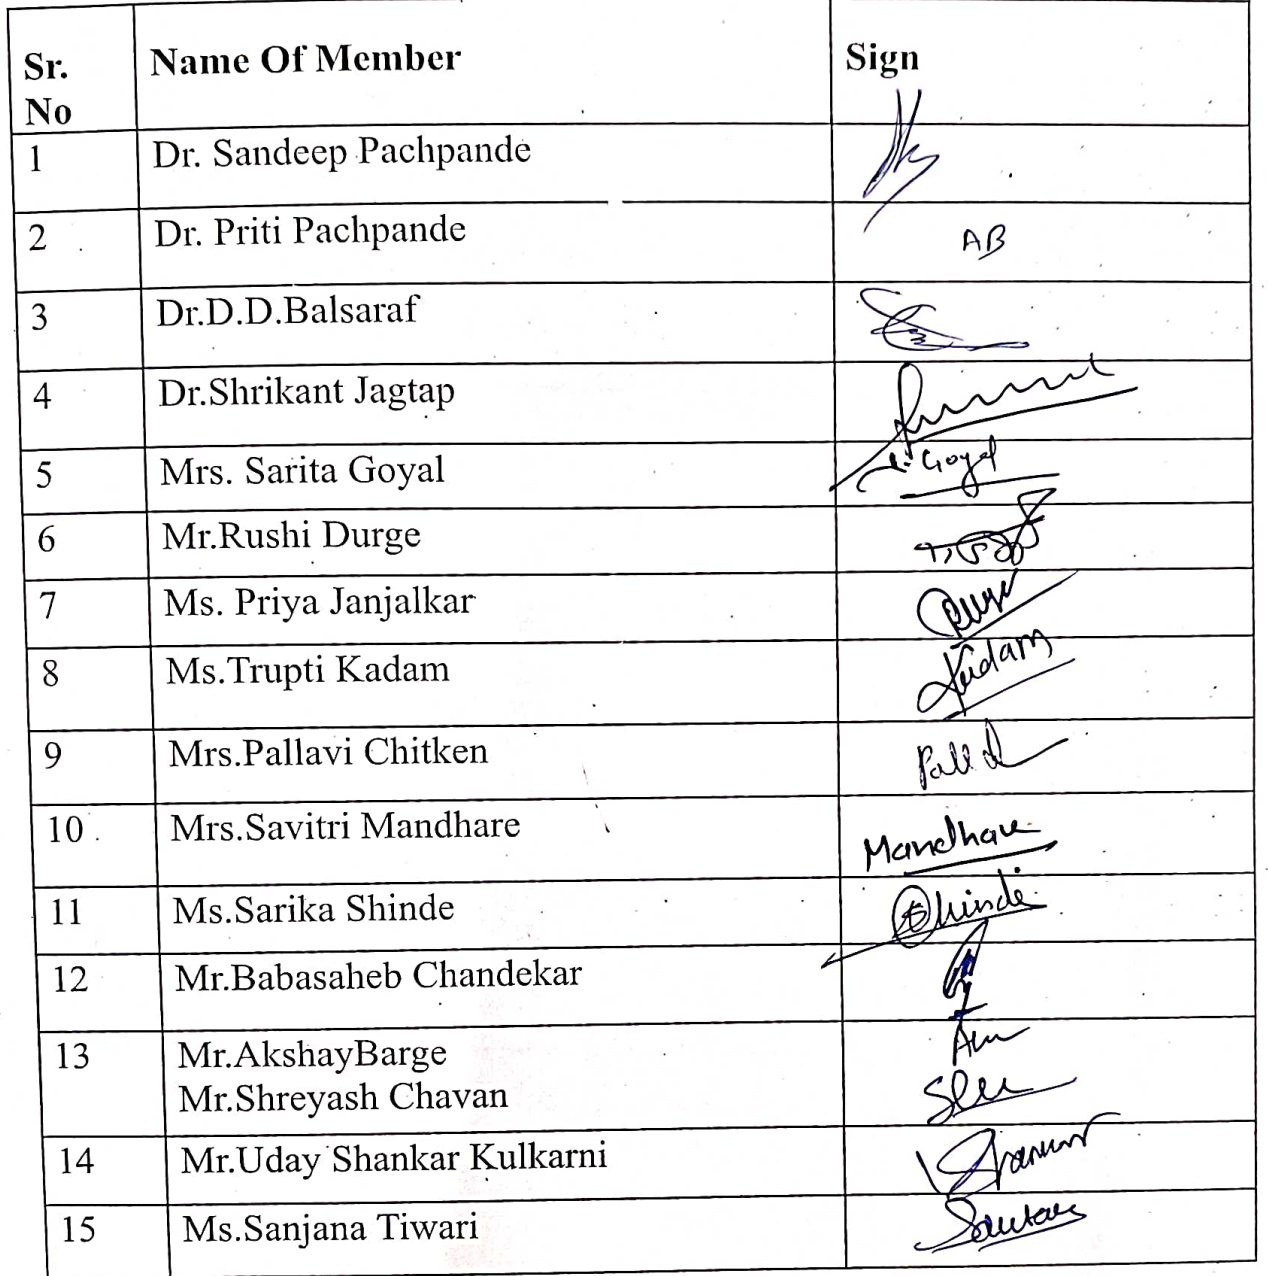 Sr. No Name Of Member Sign
1 Dr. Sandeep Pachpande
2 Dr. Priti Pachpande AB
3 Dr.D.D.Balsaraf
4 Dr.Shrikant Jagtap
5 Mrs. Sarita Goyal S. Goyal
6 Mr.Rushi Durge
7 Ms. Priya Janjalkar
8 Ms.Trupti Kadam Kadam
9 Mrs.Pallavi Chitken
10 Mrs.Savitri Mandhare Mandhare
11 Ms.Sarika Shinde Shinde
12 Mr.Babasaheb Chandekar
13 Mr.AkshayBarge
Mr.Shreyash Chavan
14 Mr.Uday Shankar Kulkarni
15 Ms.Sanjana Tiwari